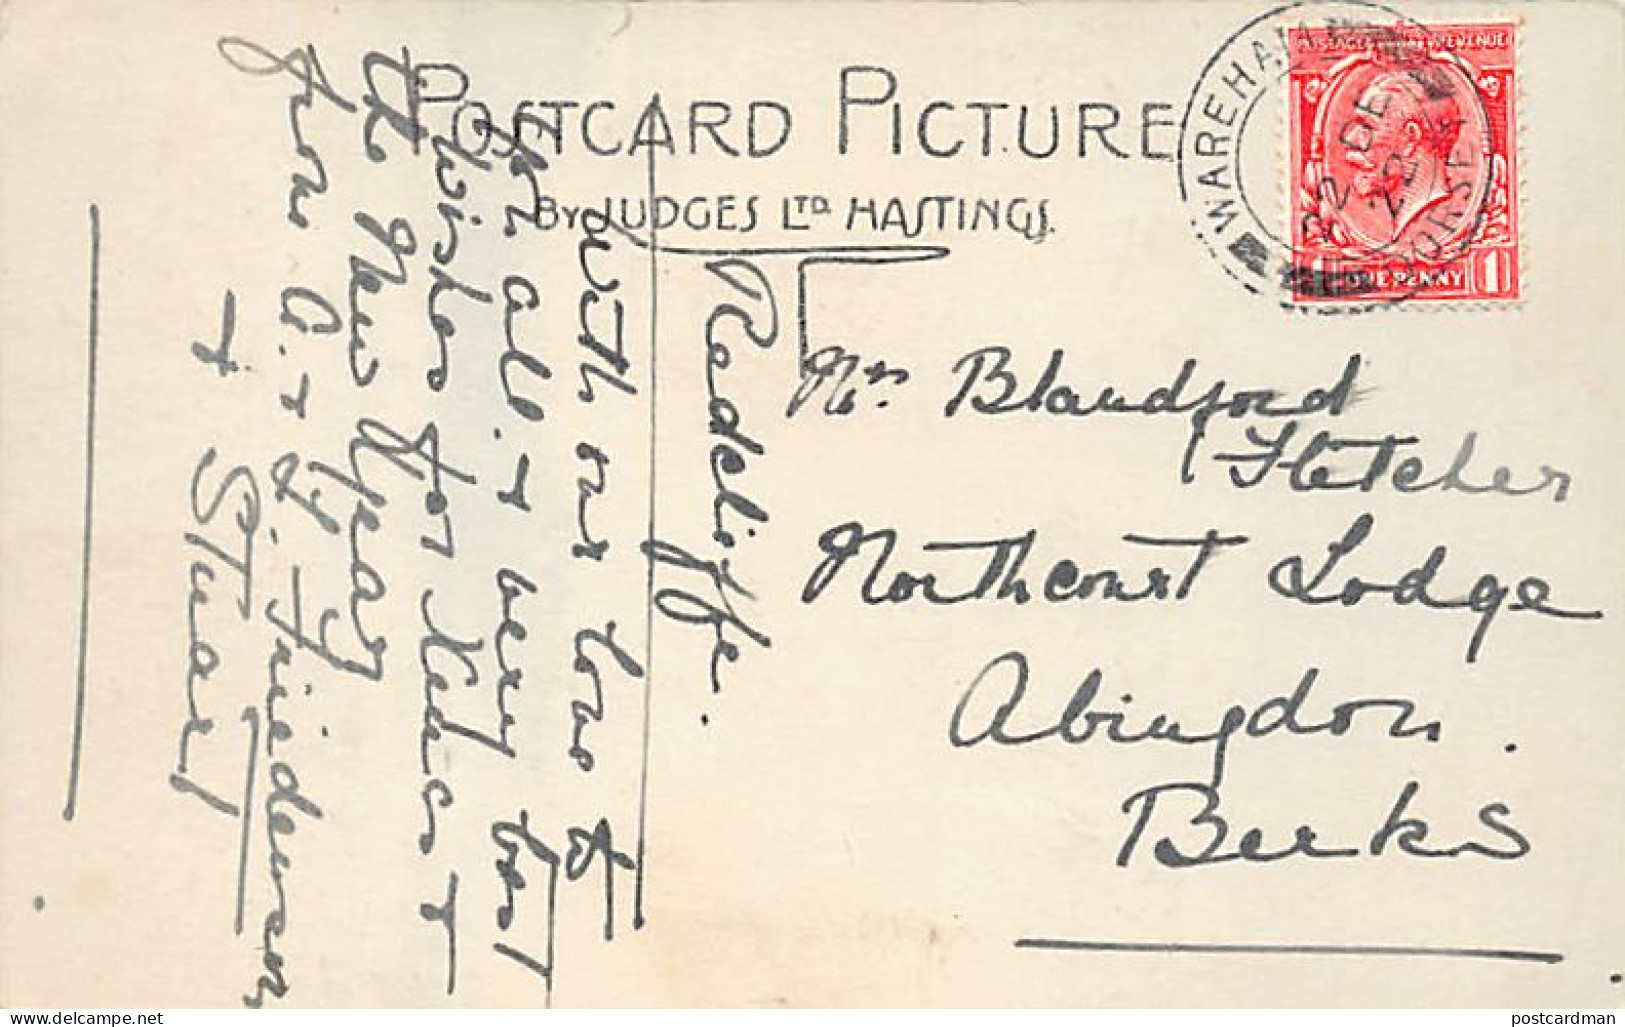 POSTCARD PICTURE
BY JUDGES LTD HASTINGS.
WAREHAM
22 DE
22
DORSET
POSTAGE REVENUE
1 ONE PENNY 1
Mrs. Blandford
Fletcher
Northcourt Lodge
Abingdon.
Berks
Radcliffe.
with our love to
you all. + very best
wishes for Xmas +
the New Year
from
+ Stuart
postcardman
www.delcampe.net